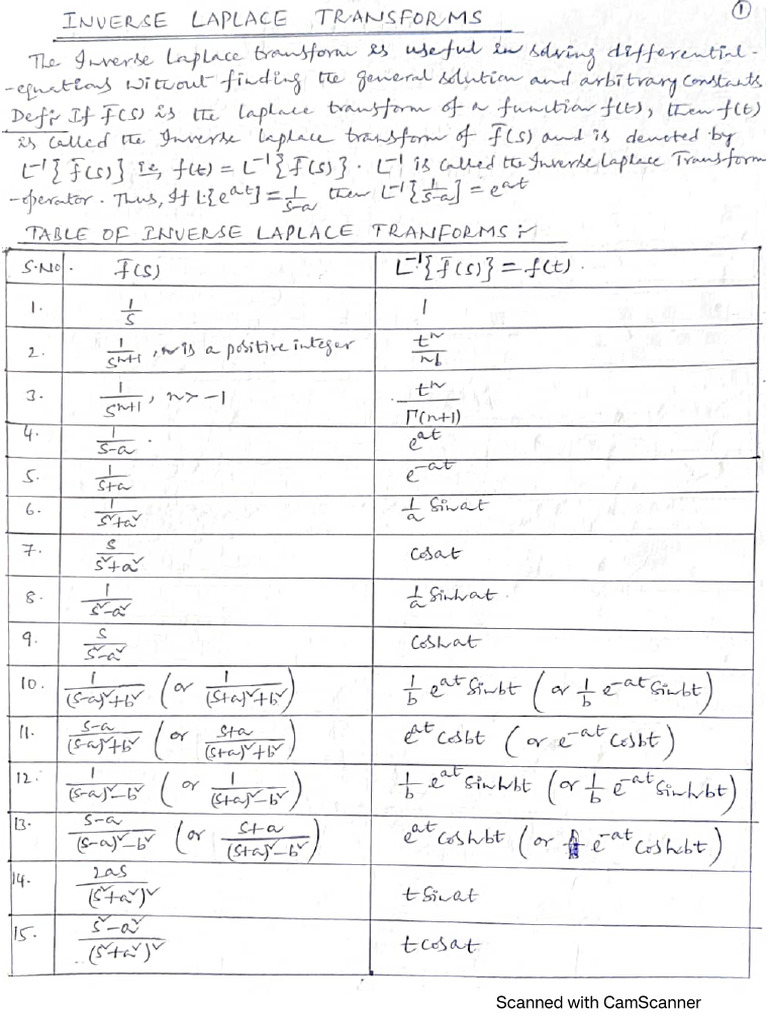 INVERSE LAPLACE TRANSFORMS
1
The Inverse Laplace transform is useful in solving differential-
-equations without finding the general solution and arbitrary constants
Def: If f̄(s) is the laplace transform of a function f(t), then f(t)
is called the Inverse laplace transform of f̄(s) and is denoted by
L⁻¹{f̄(s)} i.e, f(t) = L⁻¹{f̄(s)}. L⁻¹ is called the Inverse Laplace Transform
-operator. Thus, If L{e^at} = 1/(s-a) then L⁻¹{1/(s-a)} = e^at
TABLE OF INVERSE LAPLACE TRANFORMS :-
S.NO. f̄(s) L⁻¹{f̄(s)} = f(t).
1. 1/s 1
2. 1/s^(n+1), n is a positive integer t^n/n!
3. 1/s^(n+1), n > -1 t^n/Γ(n+1)
4. 1/(s-a) e^at
5. 1/(s+a) e^-at
6. 1/(s²+a²) 1/a Sinat
7. s/(s²+a²) Cosat
8. 1/(s²-a²) 1/a Sinhat.
9. s/(s²-a²) Coshat
10. 1/((s-a)²+b²) (or 1/((s+a)²+b²)) 1/b e^at Sinbt (or 1/b e^-at Sinbt)
11. (s-a)/((s-a)²+b²) (or (s+a)/((s+a)²+b²)) e^at Cosbt (or e^-at Cosbt)
12. 1/((s-a)²-b²) (or 1/((s+a)²-b²)) 1/b e^at Sinhbt (or 1/b e^-at Sinhbt)
13. (s-a)/((s-a)²-b²) (or (s+a)/((s+a)²-b²)) e^at Coshbt (or e^-at Coshbt)
14. 2as/(s²+a²)² t Sinat
15. (s²-a²)/(s²+a²)² t Cosat
Scanned with CamScanner